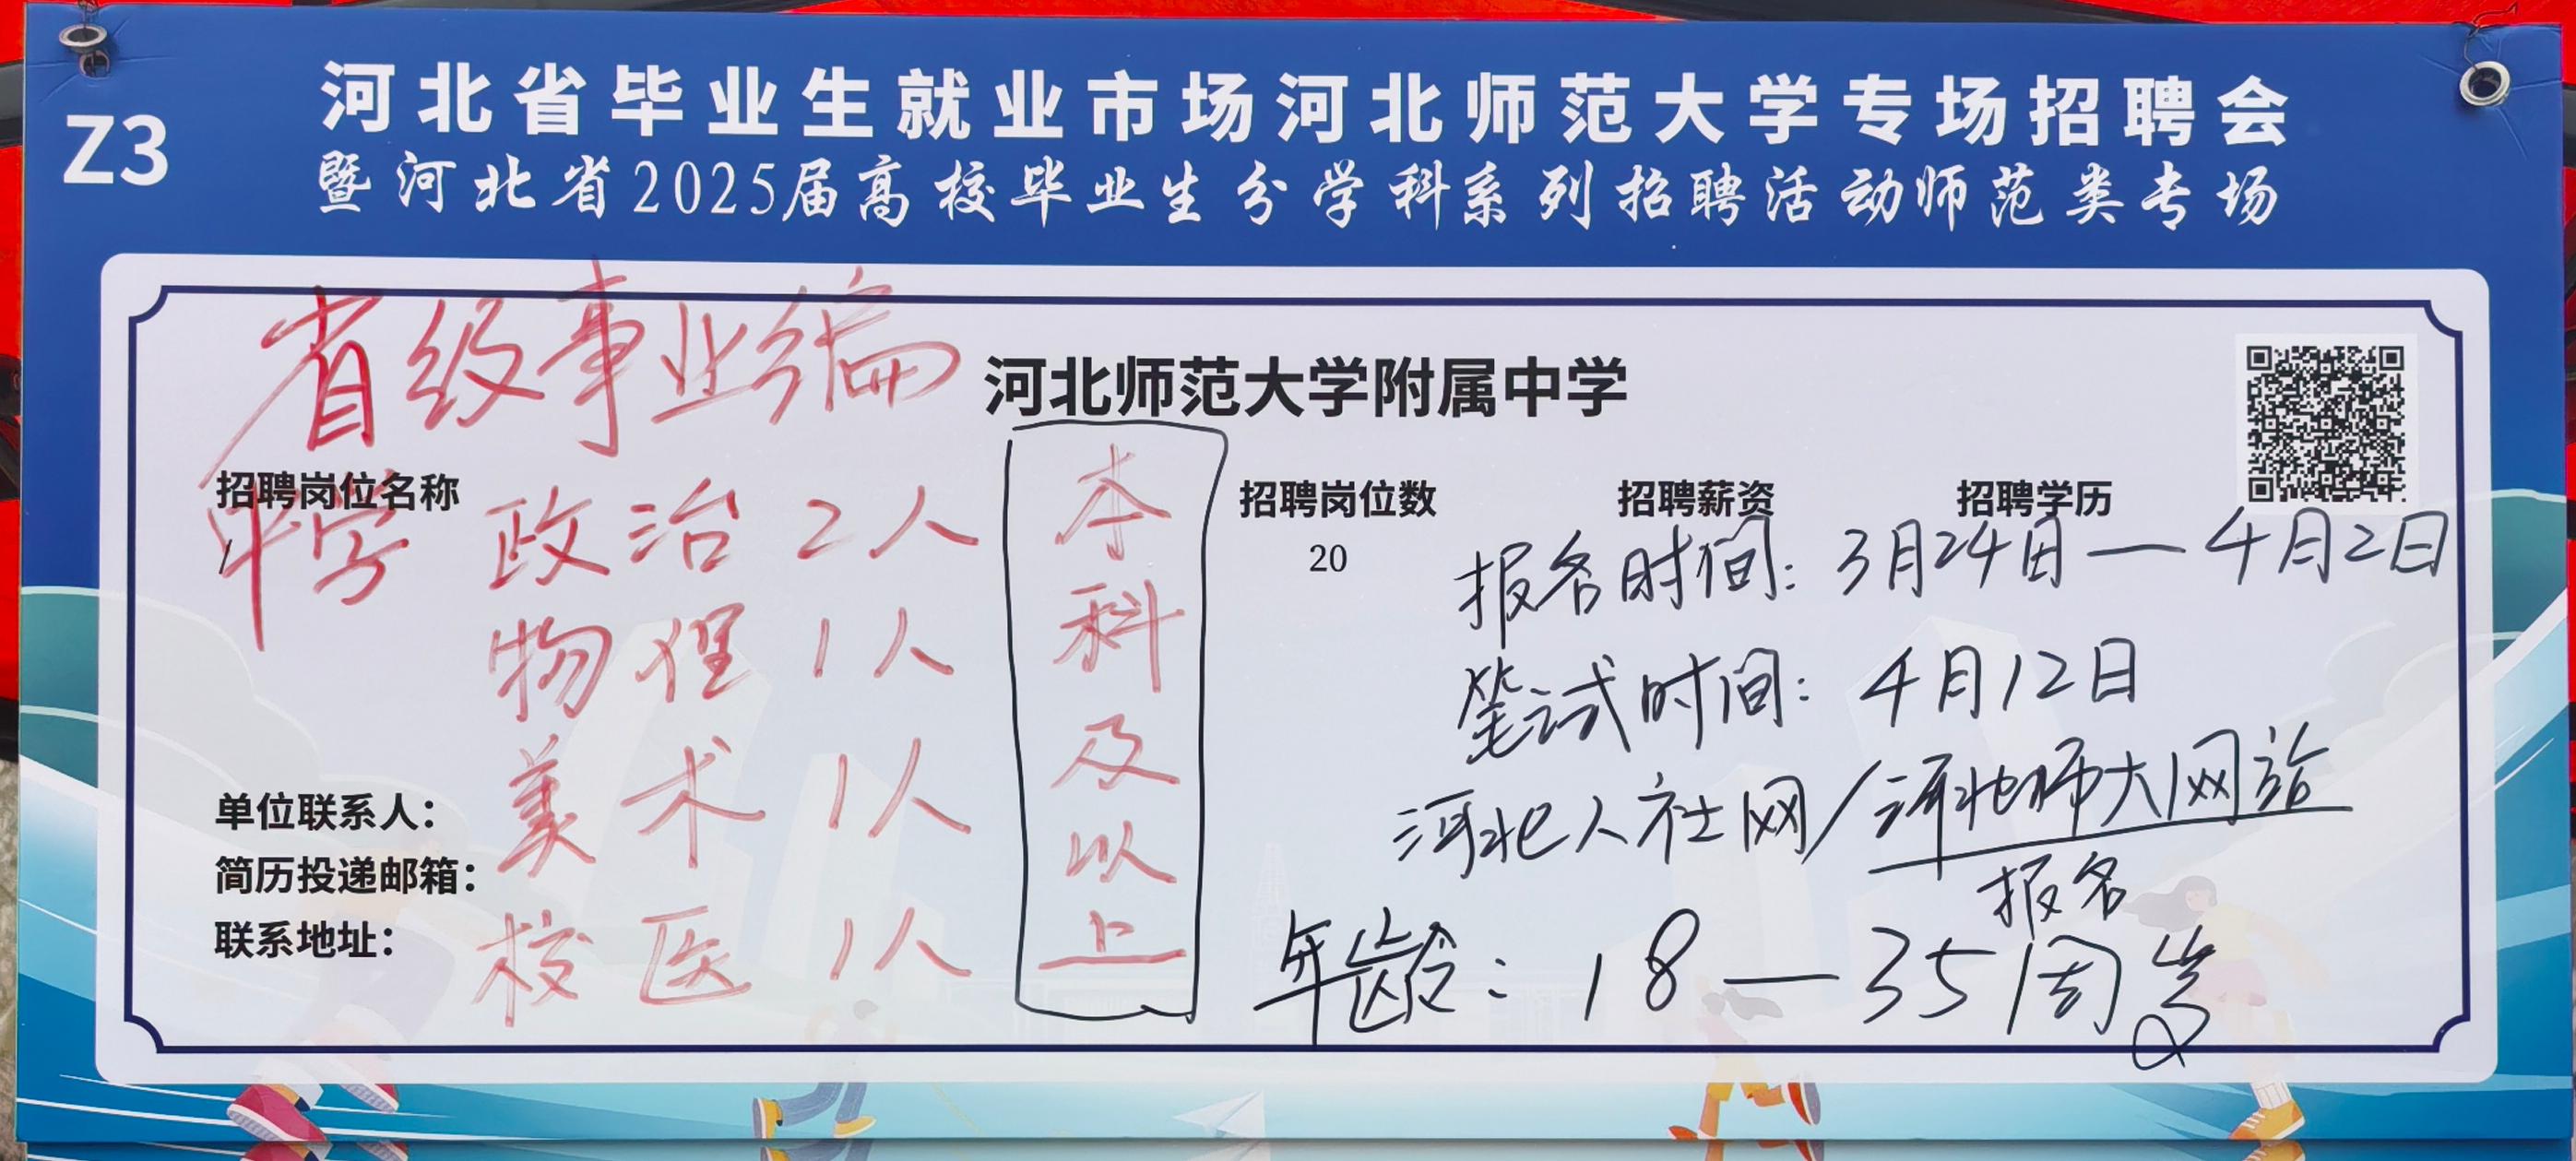 Z3
河北省毕业生就业市场河北师范大学专场招聘会
暨河北省2025届高校毕业生分学科系列招聘活动师范类专场
省级事业编
河北师范大学附属中学
招聘岗位名称
招聘岗位数
招聘薪资
招聘学历
20
中学 政治 2人
物理 1人
美术 1人
校医 1人
本科及以上
报名时间: 3月24日—4月2日
笔试时间: 4月12日
河北人社网/河北师大网站
报名
年龄: 18—35周岁
单位联系人:
简历投递邮箱:
联系地址: